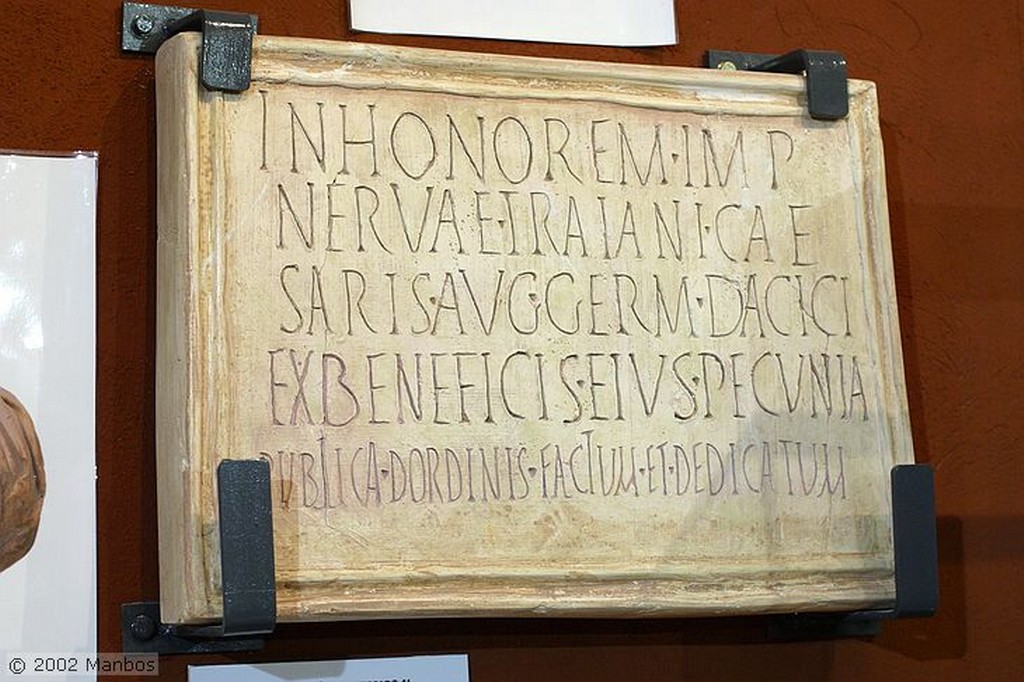 IN HONOREM·IMP
NERVAE·TRAIANI·CAE
SARIS·AVG·GERM·DACICI
EX BENEFICIS·EIVS·PECVNIA
PUBLICA·D·ORDINIS·FACTUM·ET·DEDICATUM
© 2002 Manbos